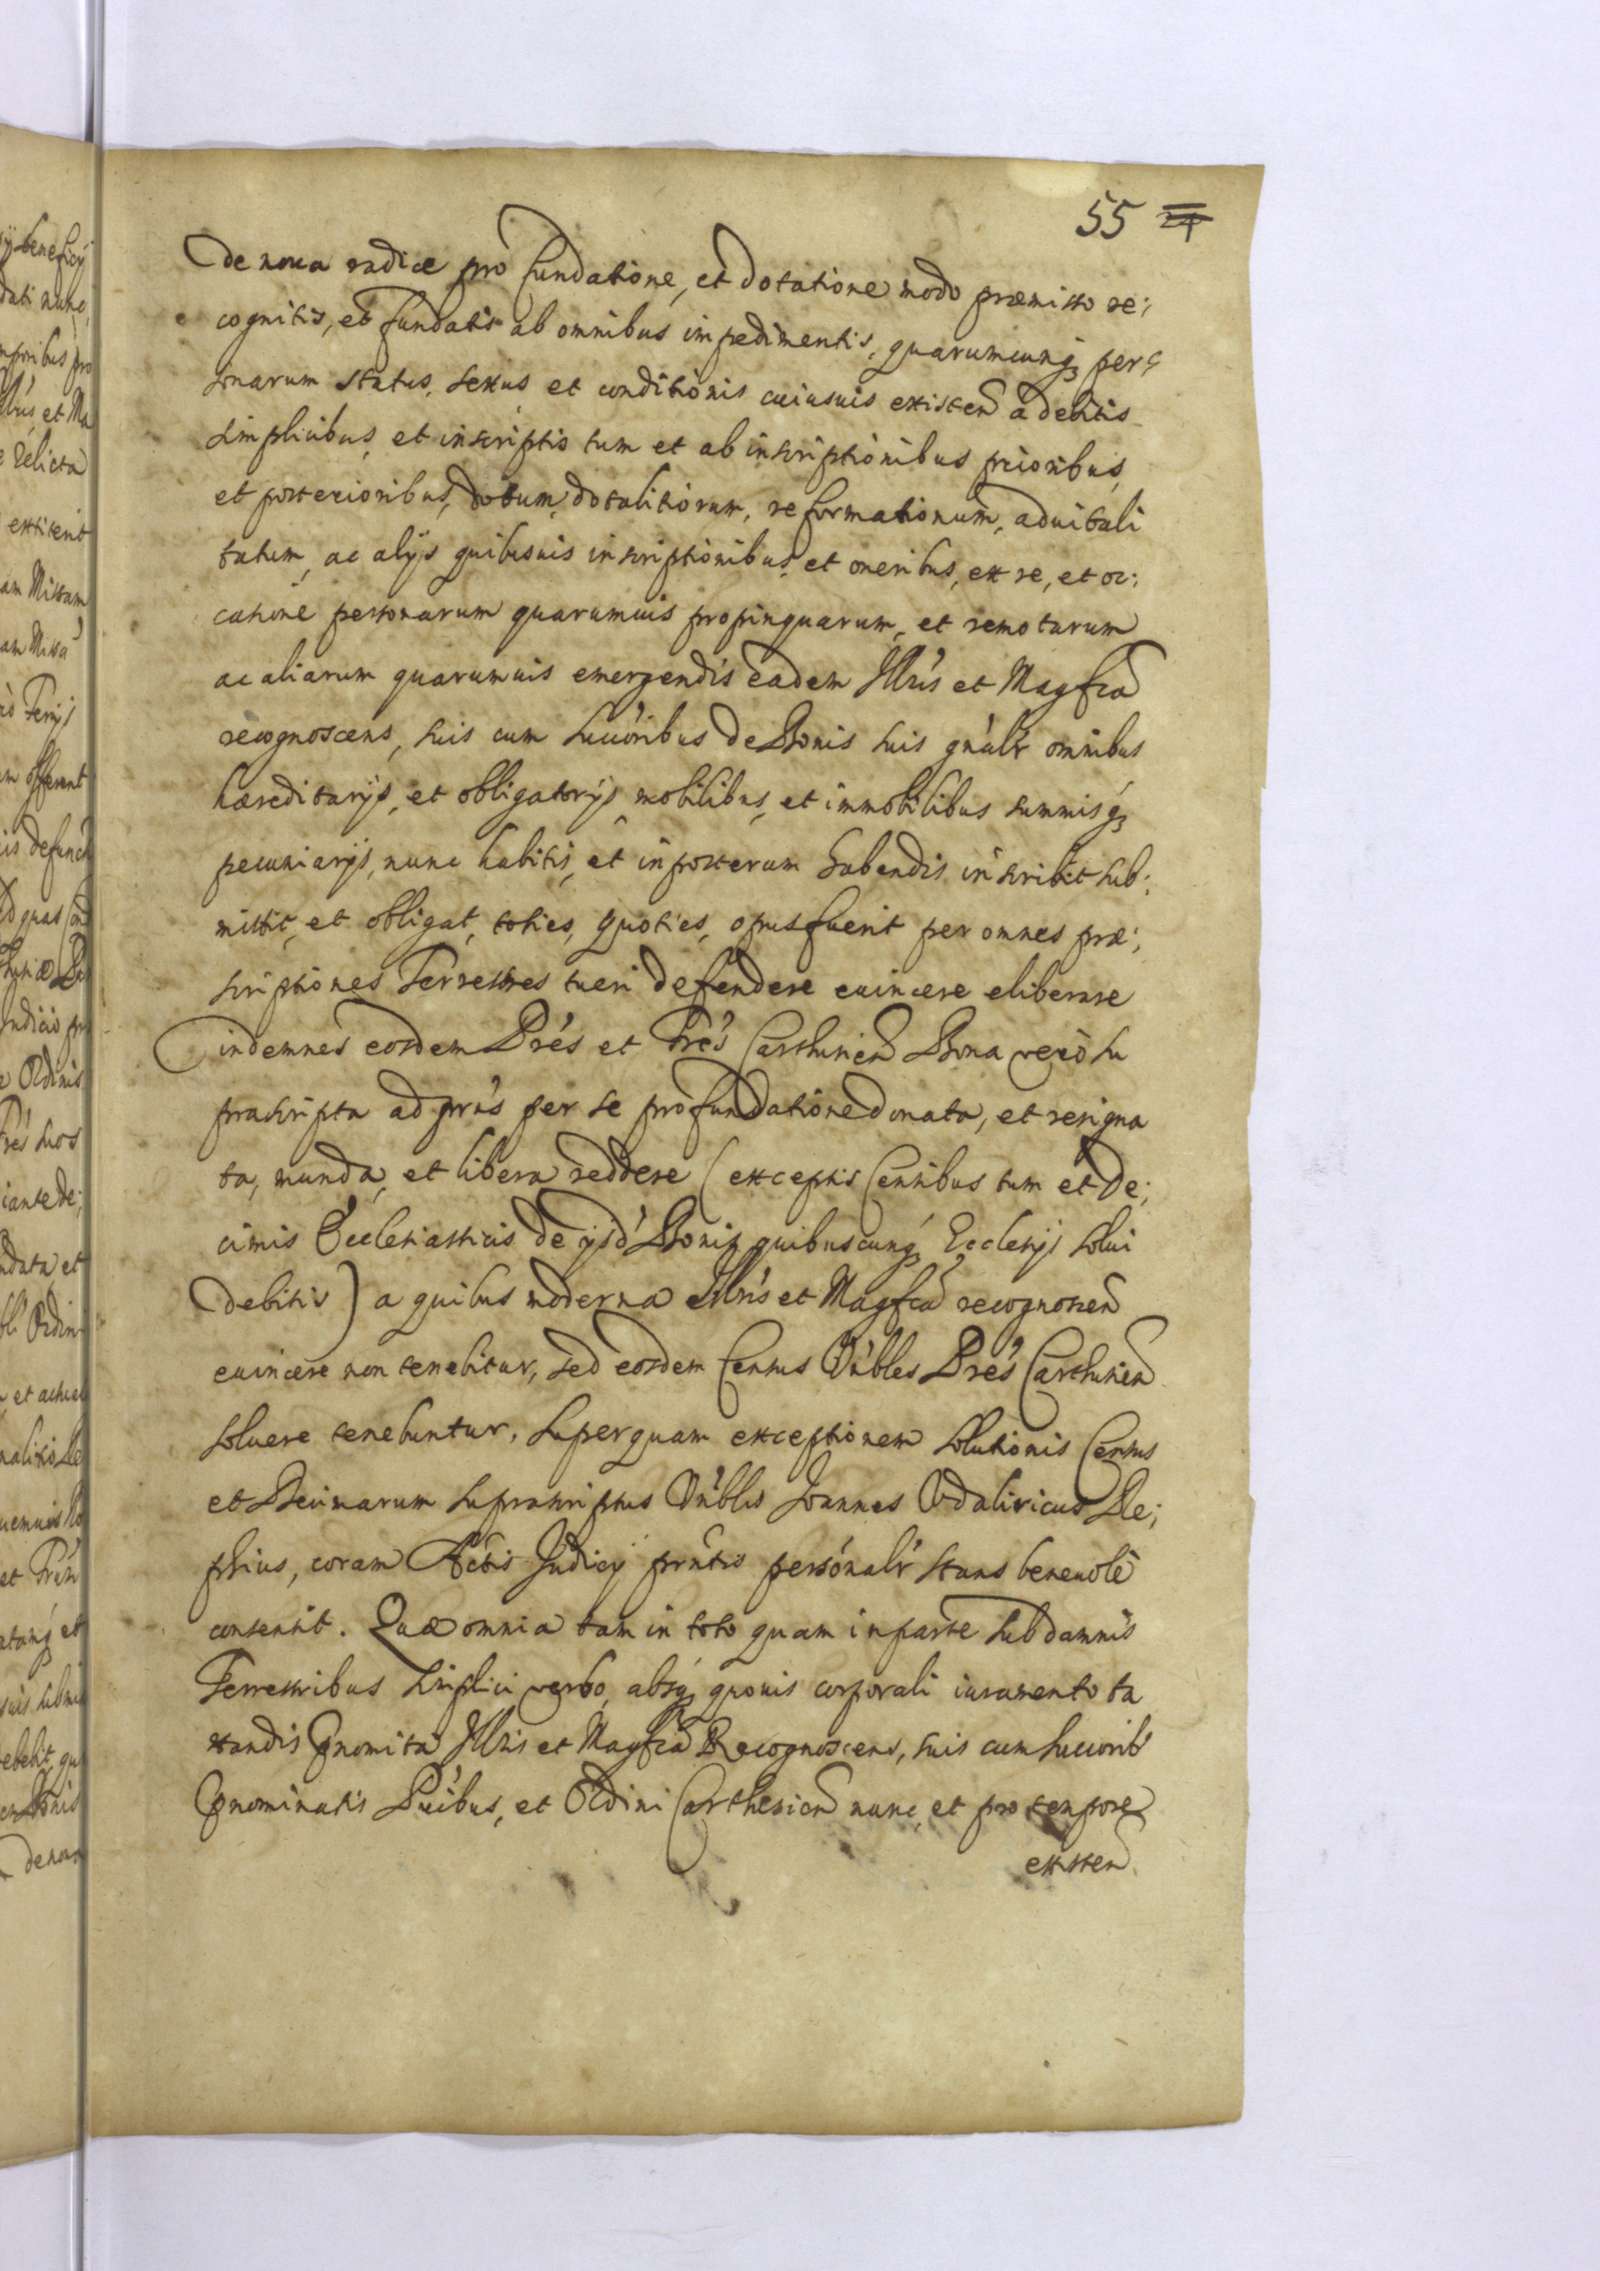 55 24
de noua radice pro fundatione, et dotatione modo præmisso re;
cognitis, et fundatis ab omnibus impedimentis, quarumcunq3 per
sonarum status, sexus et conditionis cuiusuis existen à debitis
simplicibus, et inscriptis tum et ab inscriptionibus prioribus,
et posterioribus, dotum, dotalitiorum, reformationum, aduitali
tatum, ac alijs quibusuis inscriptionibus, et oneribus, ex re, et oc;
catione personarum quarumuis propinquarum, et remotarum
ac aliarum quarumuis emergendis eadem Illris et Magfca
recognoscens, suis cum succoribus de Bonis suis gnalr omnibus
hæreditarijs, et obligatorijs, mobilibus, et immobilibus summisq3
pecuniarijs, nunc habitis, et in posterum habendis inscribit sub;
mittit, et obligat, toties, quoties, opus fuerit per omnes præ;
scriptiones Terrestres tueri defendere euincere eliberare
indemnes eosdem Pres et Fres Carthusien Bona verò su
prascripta ad prns per se pro fundatione donata, et resigna
ta, munda, et libera reddere (exceptis Censibus tum et De;
cimis Ecclesiasticis de ijsd Bonis quibuscunq3 Ecclesijs solui
debitis) a quibus moderna Illris et Magfca recognoscen
euincere non tenebitur, sed eosdem Census Vnbles Pres Carthusien
soluere tenebuntur, superquam exceptionem solutionis Census
et Decimarum suprascriptus Vnblis Joannes Vdaliricus De;
phius, coram Actis Judicij prntis personalr stans beneuolè
consensit. Quæ omnia tam in toto quam in parte sub damnis
Terrestribus simplici verbo, absq3 quouis corporali iuramento ta
xandis Pnomita Illris et Magfca Recognoscens, suis cum succorib
Pnominatis Pribus, et Ordini Carthusien nunc, et pro tempore
existen